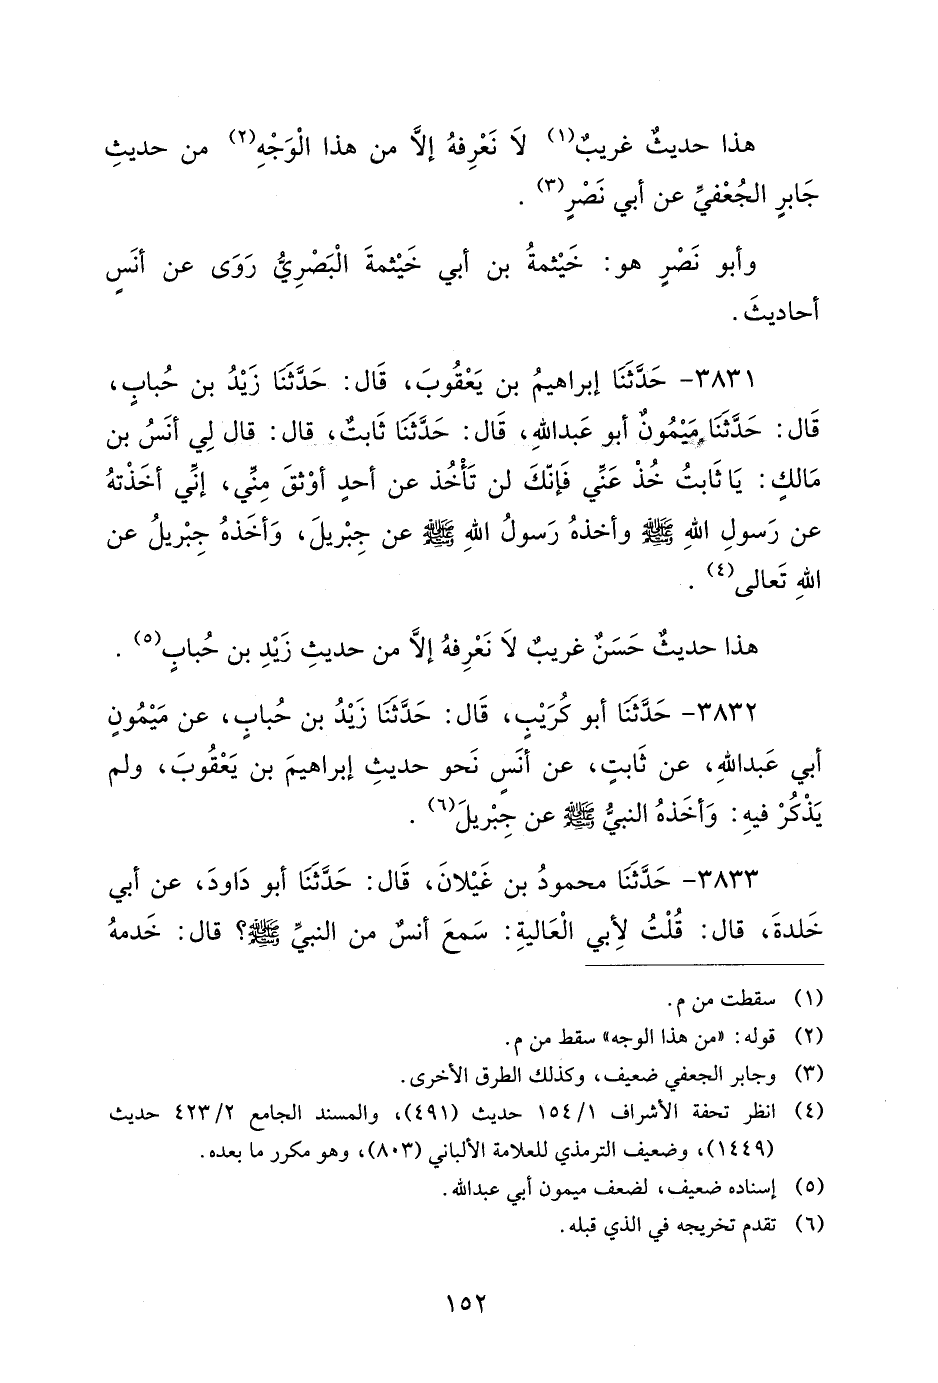 هذا حديثٌ غريبٌ(١) لاَ نَعْرِفهُ إلاَّ من هذا الْوَجْهِ(٢) من حديثِ
جَابرٍ الجُعْفيِّ عن أبي نَصْرٍ(٣) .
وأبو نَصْرٍ هو: خَيْثمةُ بن أبي خَيْثمةَ الْبَصْرِيُّ رَوَى عن أنَسٍ
أحاديثَ .
٣٨٣١- حَدَّثَنَا إبراهيمُ بن يَعْقُوبَ، قَال: حَدَّثَنَا زَيْدُ بن حُبابٍ،
قَال: حَدَّثَنَا مَيْمُونٌ أبو عَبدالله، قَال: حَدَّثَنَا ثابتٌ، قال: قال لِي أنَسُ بن
مَالكٍ: يَا ثَابتُ خُذْ عَنِّي فَإنّكَ لن تَأْخُذ عن أحدٍ أوْثقَ مِنِّي، إنِّي أخَذْتهُ
عن رَسولِ اللهِ ﷺ وأخذهُ رَسولُ اللهِ ﷺ عن جِبْريلَ، وَأخَذهُ جِبْريلُ عن
اللهِ تَعالى(٤) .
هذا حديثٌ حَسَنٌ غريبٌ لاَ نَعْرِفهُ إلاَّ من حديثِ زَيْدِ بن حُبابٍ(٥) .
٣٨٣٢- حَدَّثَنَا أبو كُرَيْبٍ، قَال: حَدَّثَنَا زَيْدُ بن حُبابٍ، عن مَيْمُونٍ
أبي عَبدالله، عن ثَابتٍ، عن أنَسٍ نَحو حديثِ إبراهيمَ بن يَعْقُوبَ، ولم
يَذْكُرْ فيهِ: وَأخَذهُ النبيُّ ﷺ عن جِبْريلَ(٦) .
٣٨٣٣- حَدَّثَنَا محمودُ بن غَيْلانَ، قَال: حَدَّثَنَا أبو دَاودَ، عن أبي
خَلدةَ، قال: قُلْتُ لِأبي الْعَاليةِ: سَمعَ أنسٌ من النبيِّ ﷺ؟ قال: خَدمهُ
(١) سقطت من م.
(٢) قوله: «من هذا الوجه» سقط من م.
(٣) وجابر الجعفي ضعيف، وكذلك الطرق الأخرى.
(٤) انظر تحفة الأشراف ١٥٤/١ حديث (٤٩١)، والمسند الجامع ٤٢٣/٢ حديث
(١٤٤٩)، وضعيف الترمذي للعلامة الألباني (٨٠٣)، وهو مكرر ما بعده.
(٥) إسناده ضعيف، لضعف ميمون أبي عبدالله.
(٦) تقدم تخريجه في الذي قبله.
١٥٢